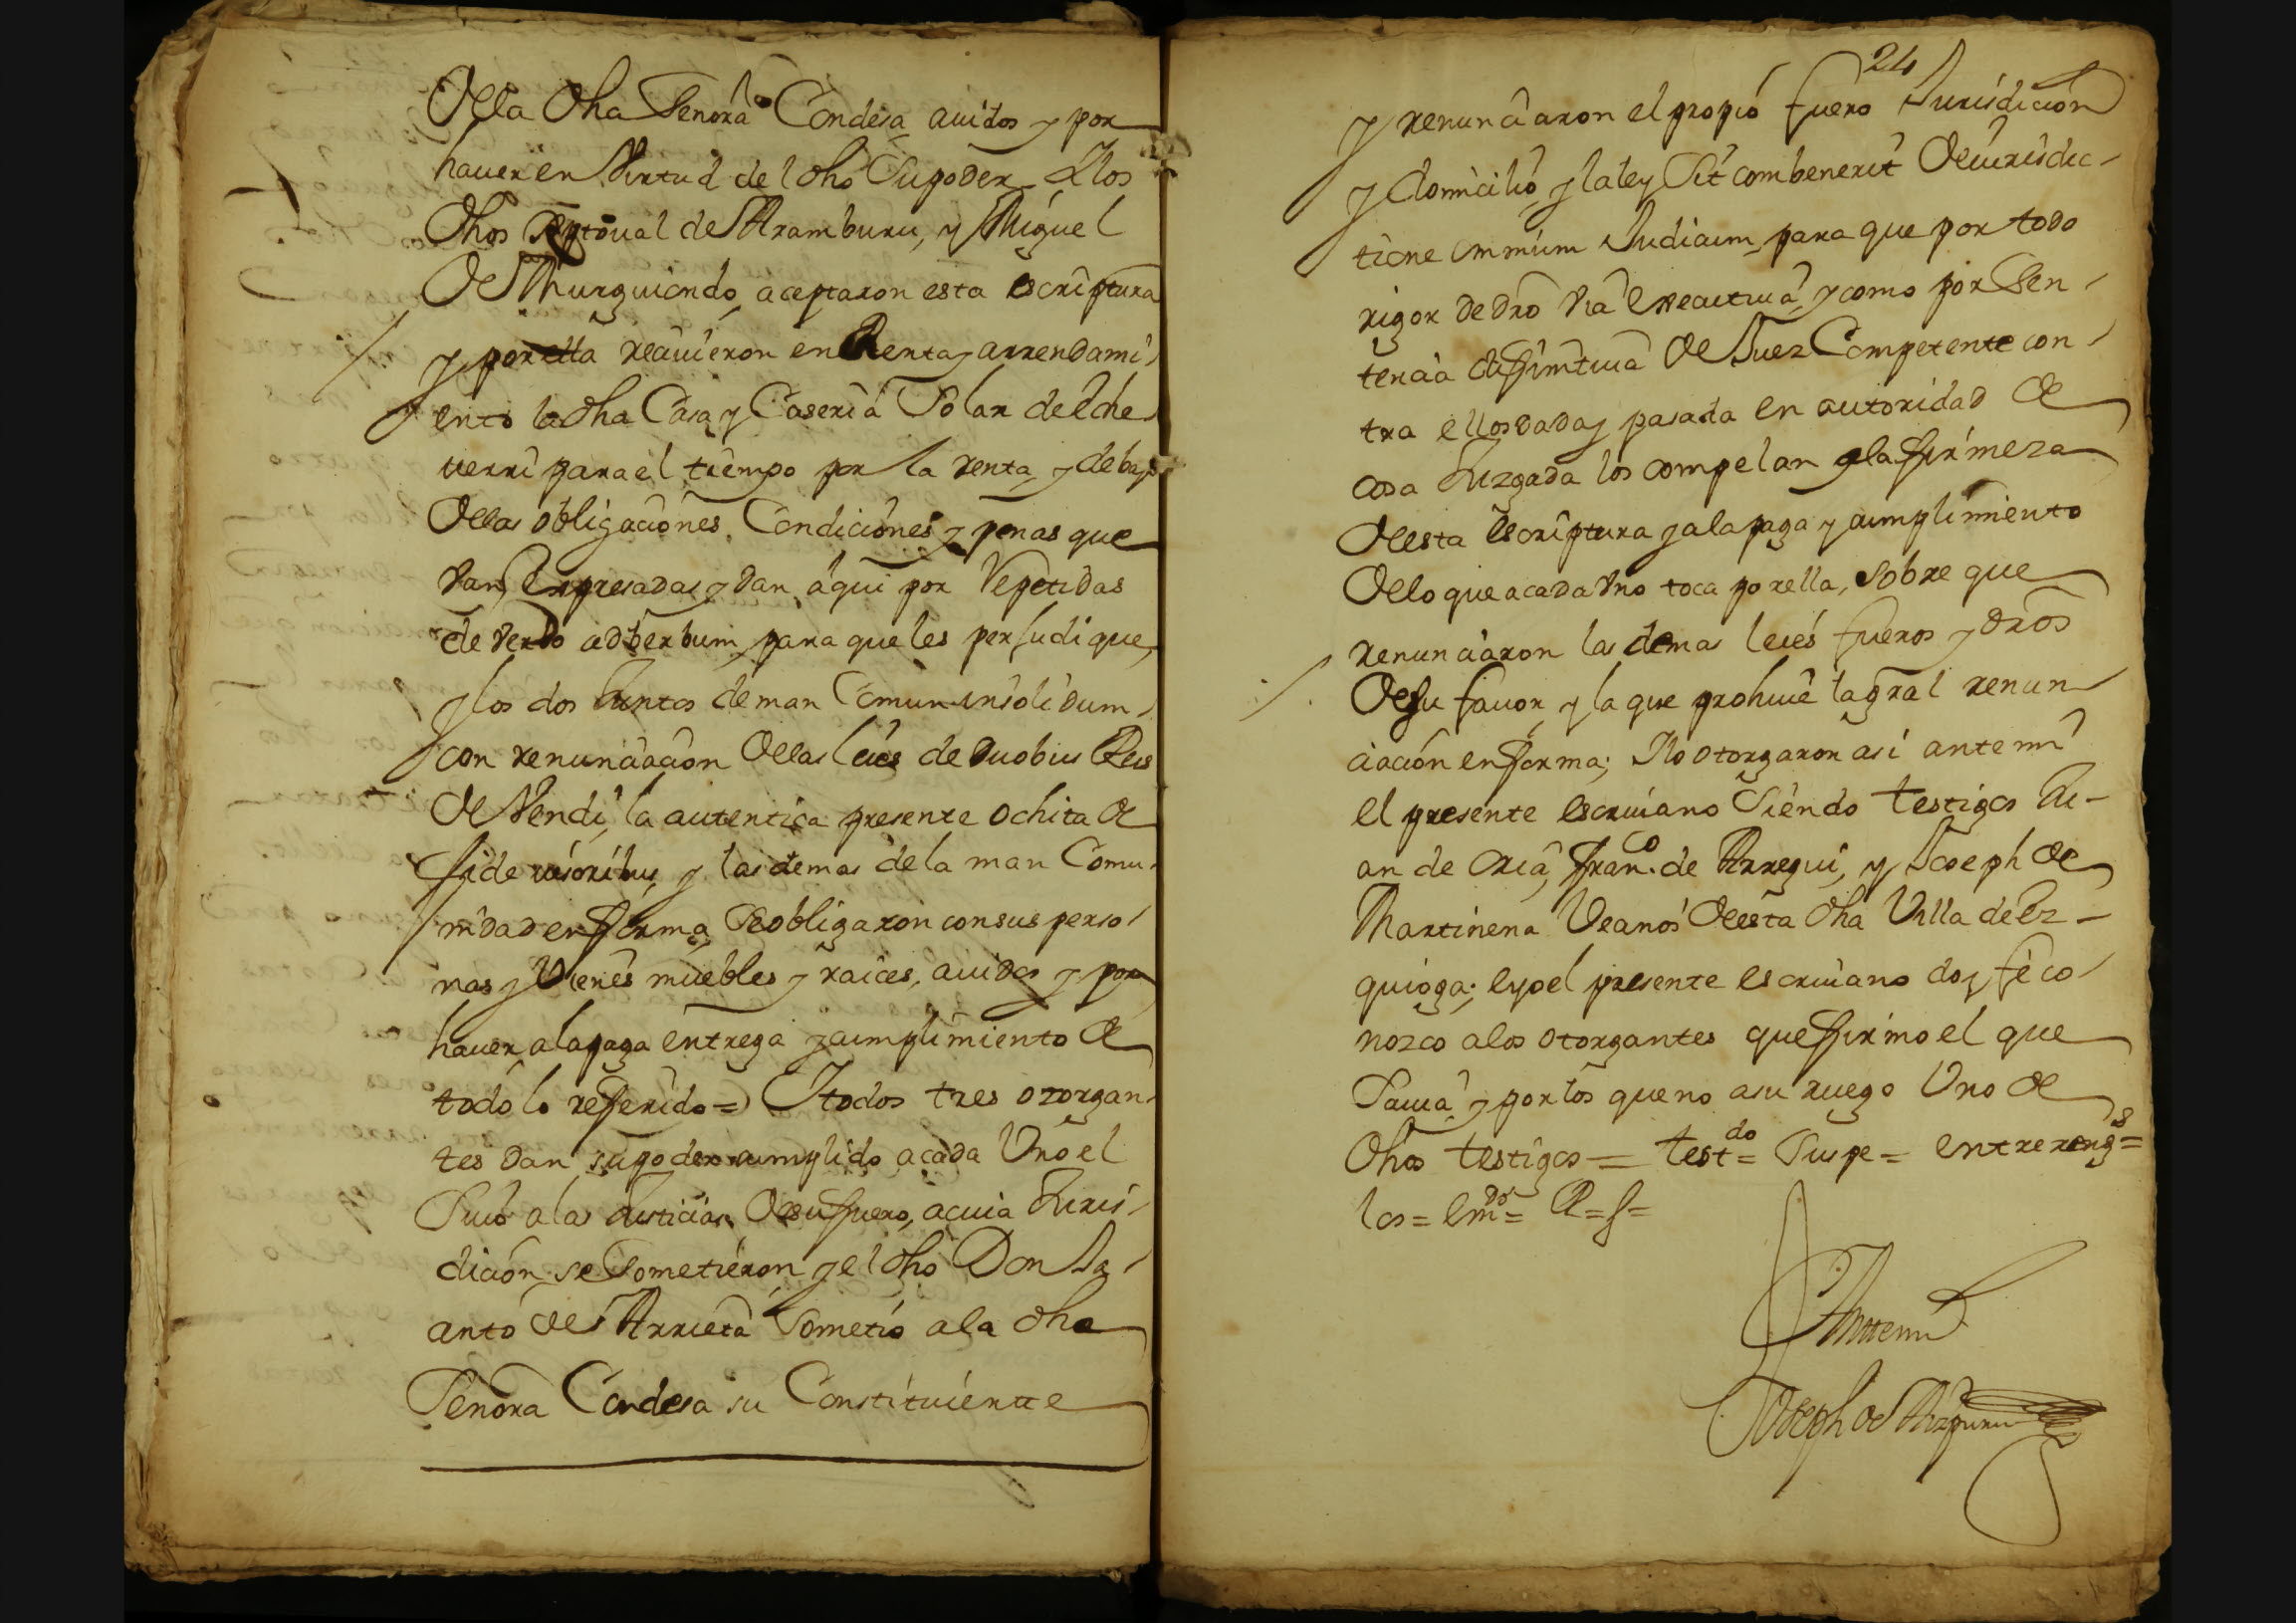 Della dha Senora Condesa auidos y por
hauer en Virtud del dho Su poder Y los
dhos Xptoual de Aramburu, y Miguel
De Murguiondo aceptaron esta escriptura
y por ella reciuieron en Renta y arrendami
ento la dha Casa y Caseria Solar de Eche
uerri para el tiempo por la renta, y debajo
Dellas obligaciones Condiciones y penas que
Van Expresadas y dan aqui por Repetidas
de verbo adberbum para que les perJudique,
y los dos Juntos de man Comun insolidum
con renunciacion Dellas leies de duobus Reis
De Vendi, la autentica presente ochita de
fide iusoribus y las demas de la man Comu
nidad en fforma Se obligaron con sus perso
nas y Vienes muebles y raices, auidos y por
hauer a la paga entrega y cumplimiento de
todo lo refferido = Y todos tres otorgan
tes dan su poder cumplido a cada Uno el
Suio a las Justicias De su ffuero, a cuia Juris
dicion se Sometieron y el dho Don Ja
cinto de Arrieta Sometio a la dha
Senora Condesa su Constituiente
24
y renunciaron el propio fuero Jurisdicion
y domicilio y la ley Sit combenerit De iurisdic
tione omnium Judicum para que por todo
rigor de dro Via Executiua y como por Sen
tencia diffinitiua De Juez Competente con
tra ellos dada y pasada en autoridad de
cosa Juzgada los compelan a la ffirmeza
Desta Escriptura y a la paga y cumplimiento
De lo que a cada Uno toca por ella, Sobre que
renunciaron las demas leies fueros y dros
De su fauor y la que prohiue la gral renun
ciacion en fforma; Y lo otorgaron asi ante mi
el presente escriuano Siendo testigos Ju
an de Oria, Fran.co de Arregui, y Joseph de
Martinena Vecinos Desta dha Villa de Ez
quioga; e yo el presente escriuano doy fe co
nozco a los otorgantes que ffirmo el que
Sauia y por los que no a su ruego Uno de
dhos testigos = testdo = Supe = entrerengs =
los = emdo = R = f =
Ante mi
Joseph de Aizpuru